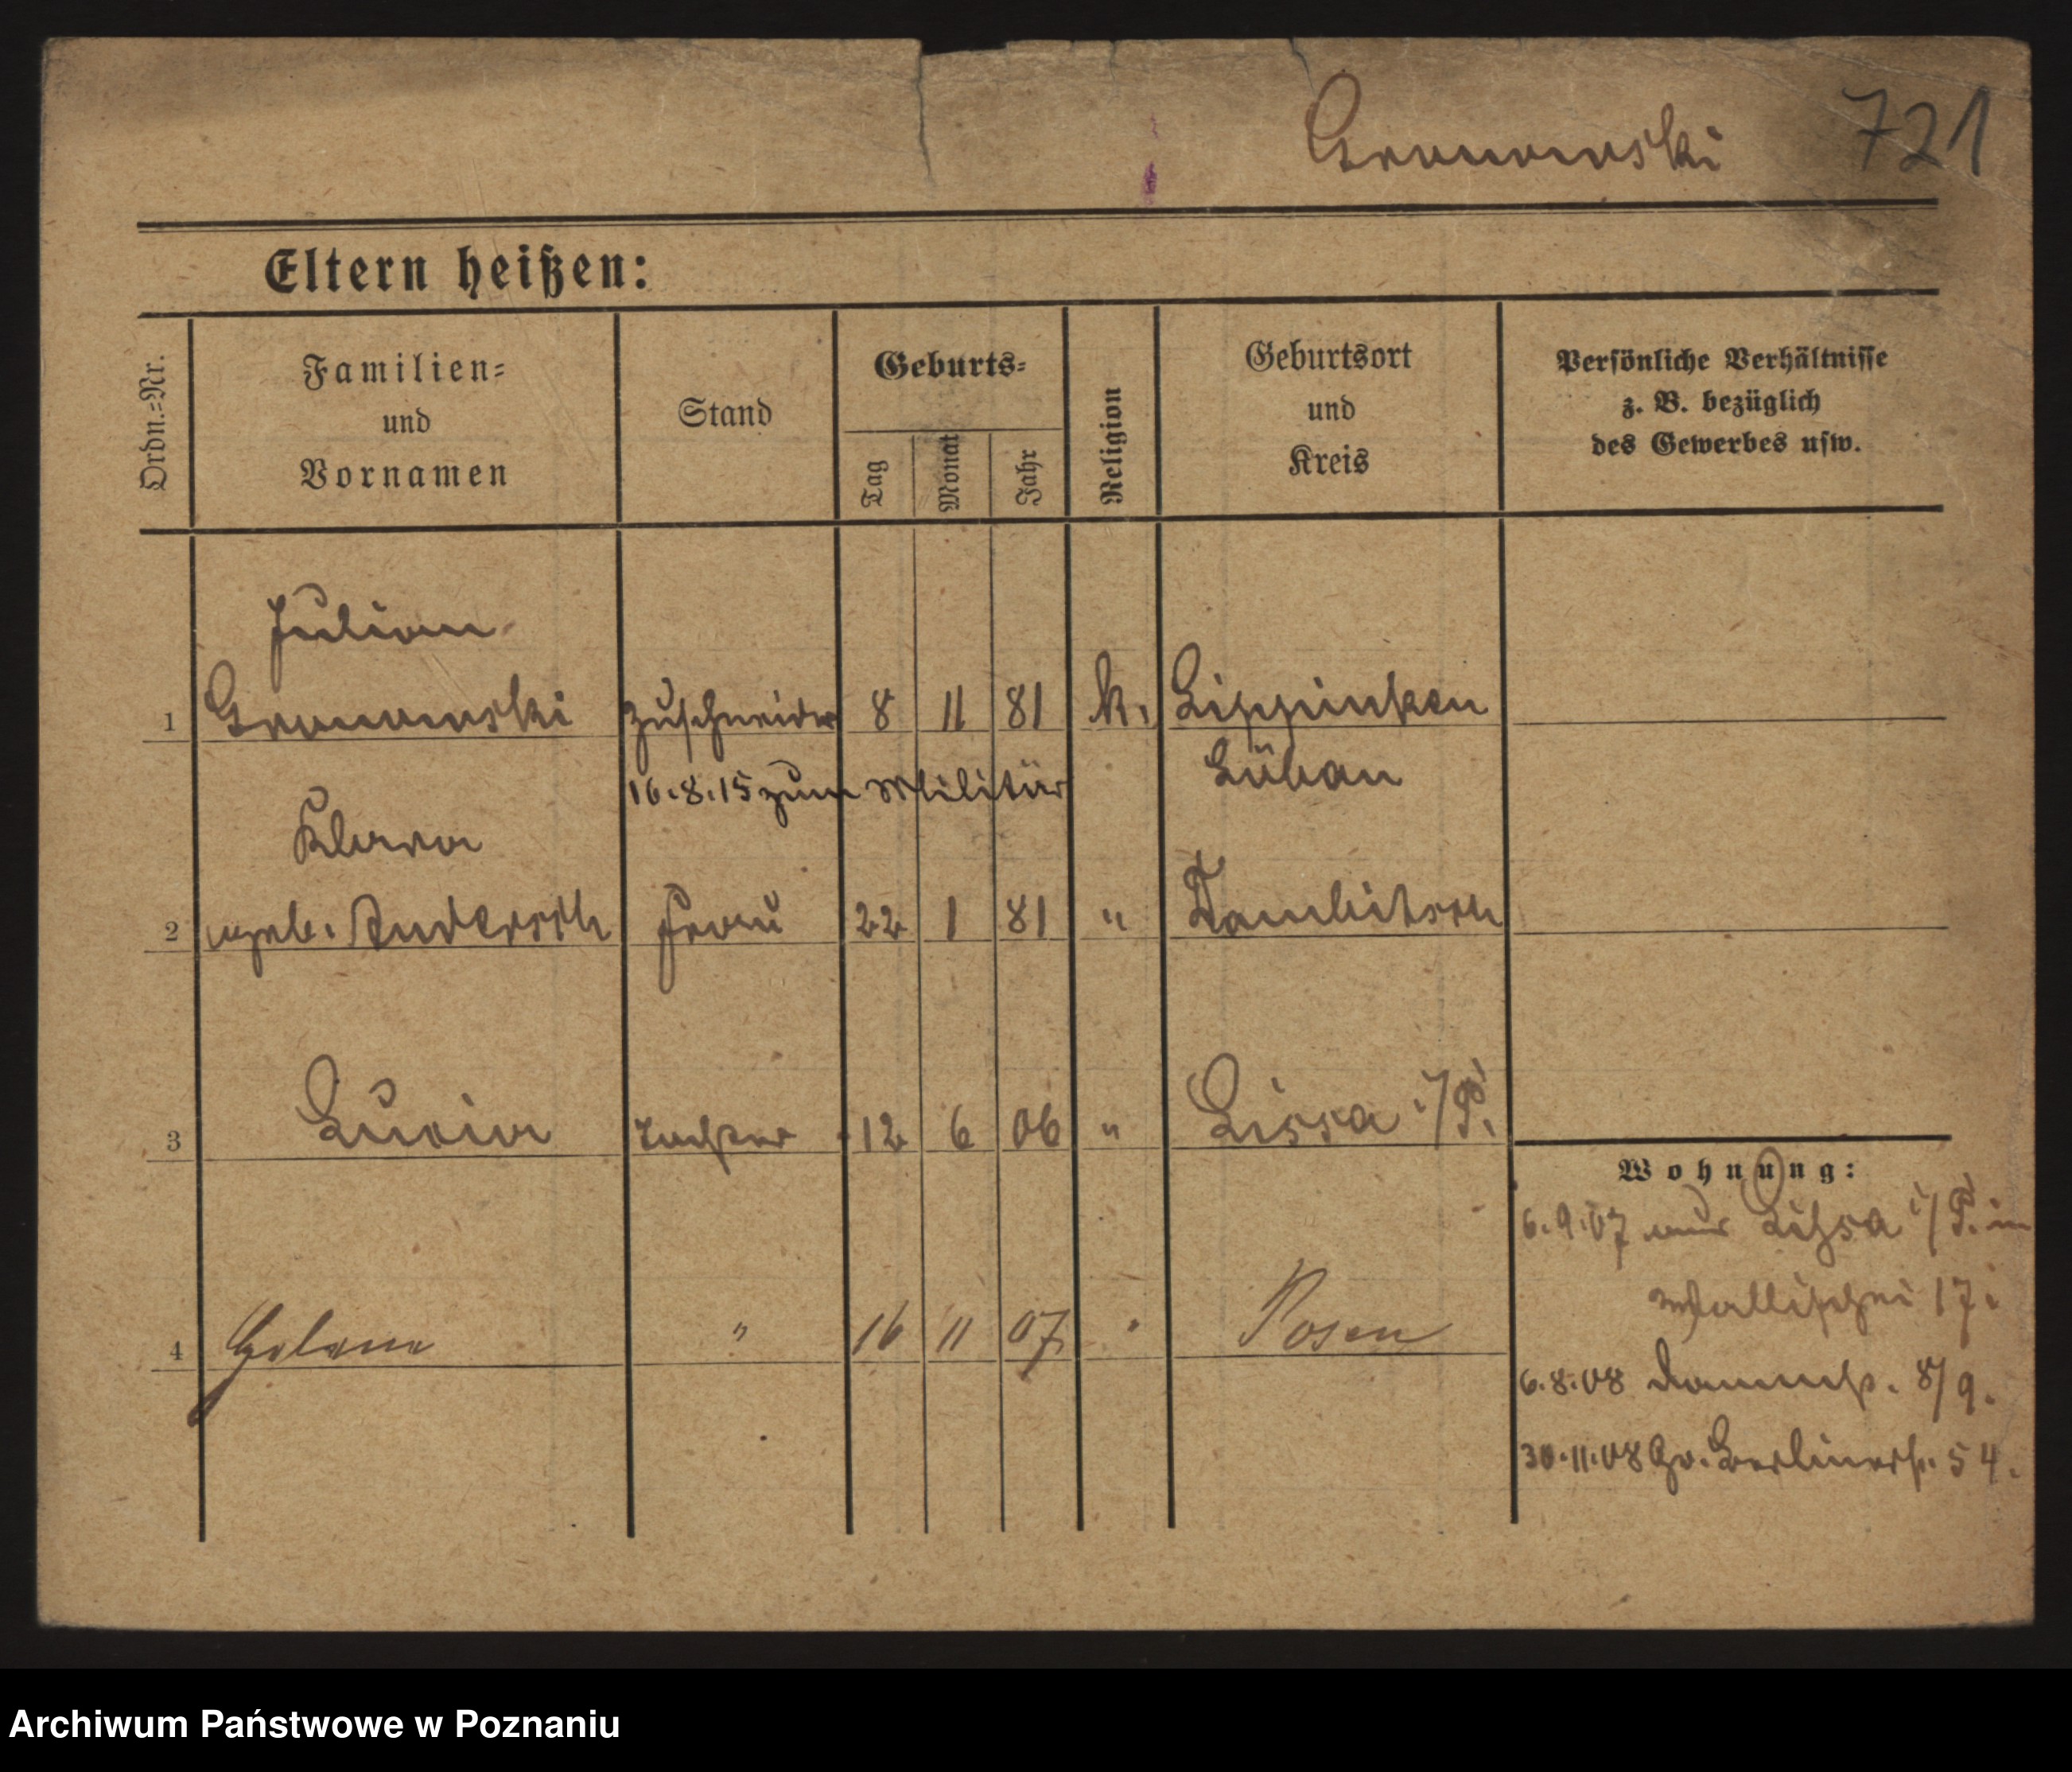 Gronowski 721
Eltern heißen:
Ordn.=Nr.
Familien=
und
Vornamen
Stand
Geburts=
Tag
Monat
Jahr
Religion
Geburtsort
und
Kreis
Persönliche Verhältnisse
z. B. bezüglich
des Gewerbes usw.
Julian
1 Gronowski Zuschneider 8 11 81 k. Lippinken
16.8.15 zum Militär Löbau
Klara
2 geb. Andersch Frau 22 1 81 " Dambitsch
3 Lucia Tochter 12 6 06 " Lissa i/P.
Wohnung:
6.9.07 aus Lissa i/P. in
Wallischei 17.
4 Helene " 16 11 07 " Posen
6.8.08 Dammstr. 8/9.
30.11.08 Gr. Berlinerstr. 54.
Archiwum Państwowe w Poznaniu